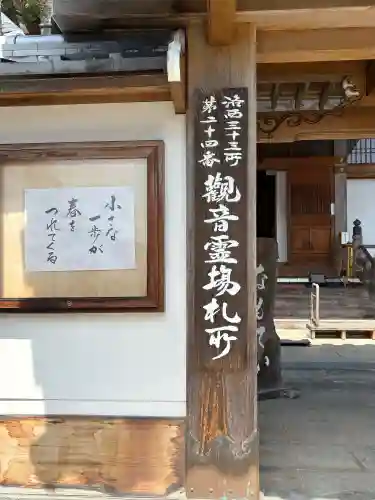 洛西三十三所
第二十四番
観音霊場札所
小さな
一歩が
春を
つれてくる